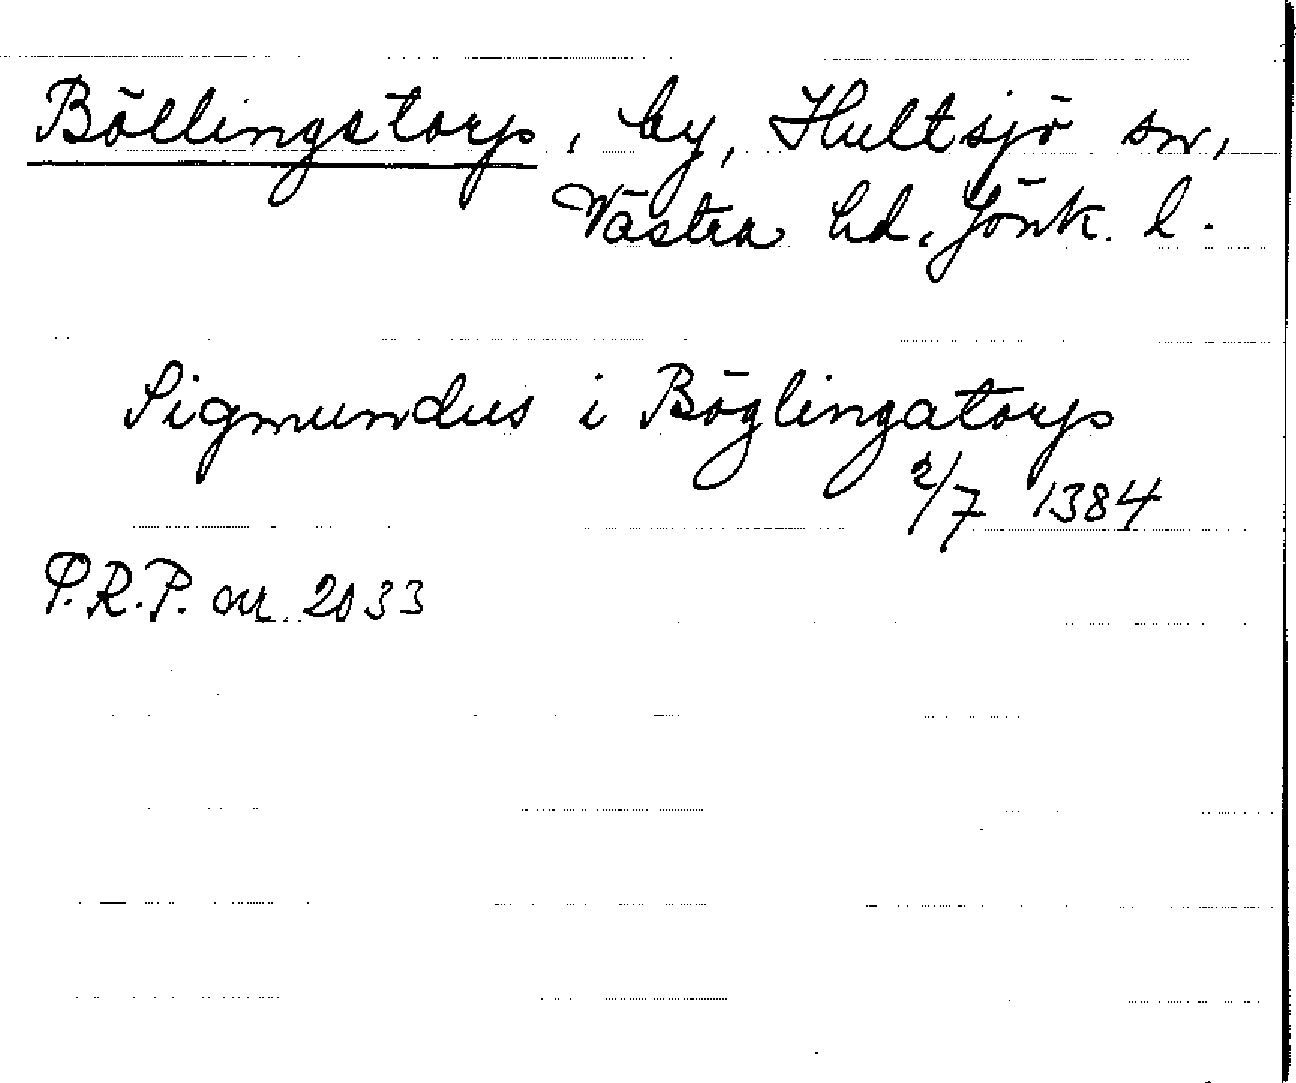 Böllingstorp, by, Hultsjö sn,
Västra hd, Jönk. l.
Sigmundus i Böglingatorp
2/7 1384
P.R.P. nr. 2033